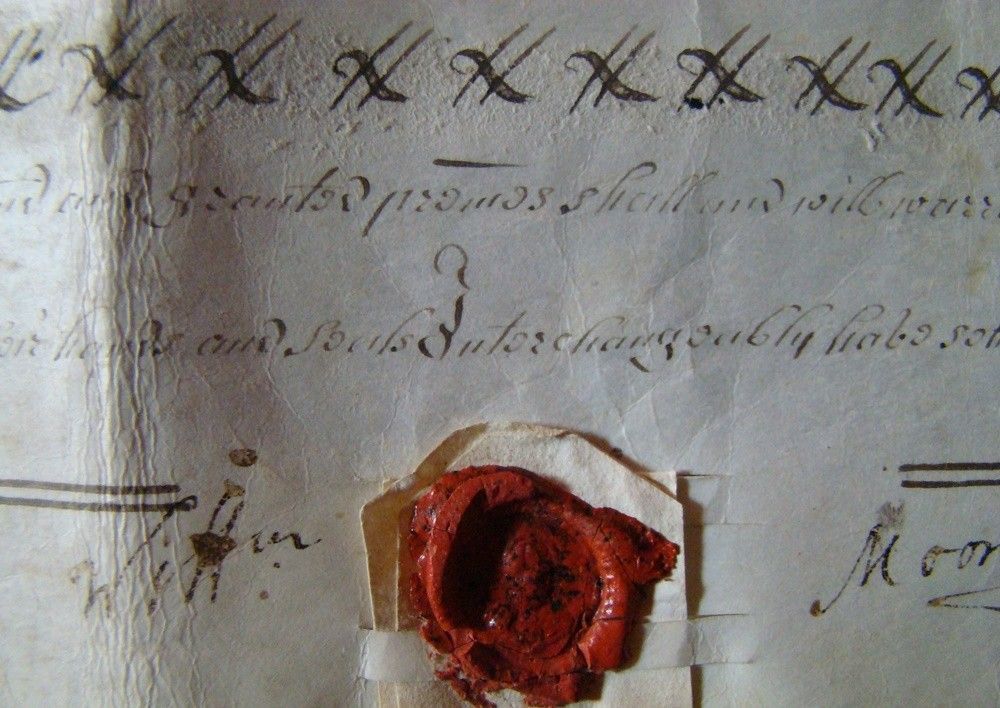 and granted premes shall and will warr
hands and seals Interchangeably habe set
Moor